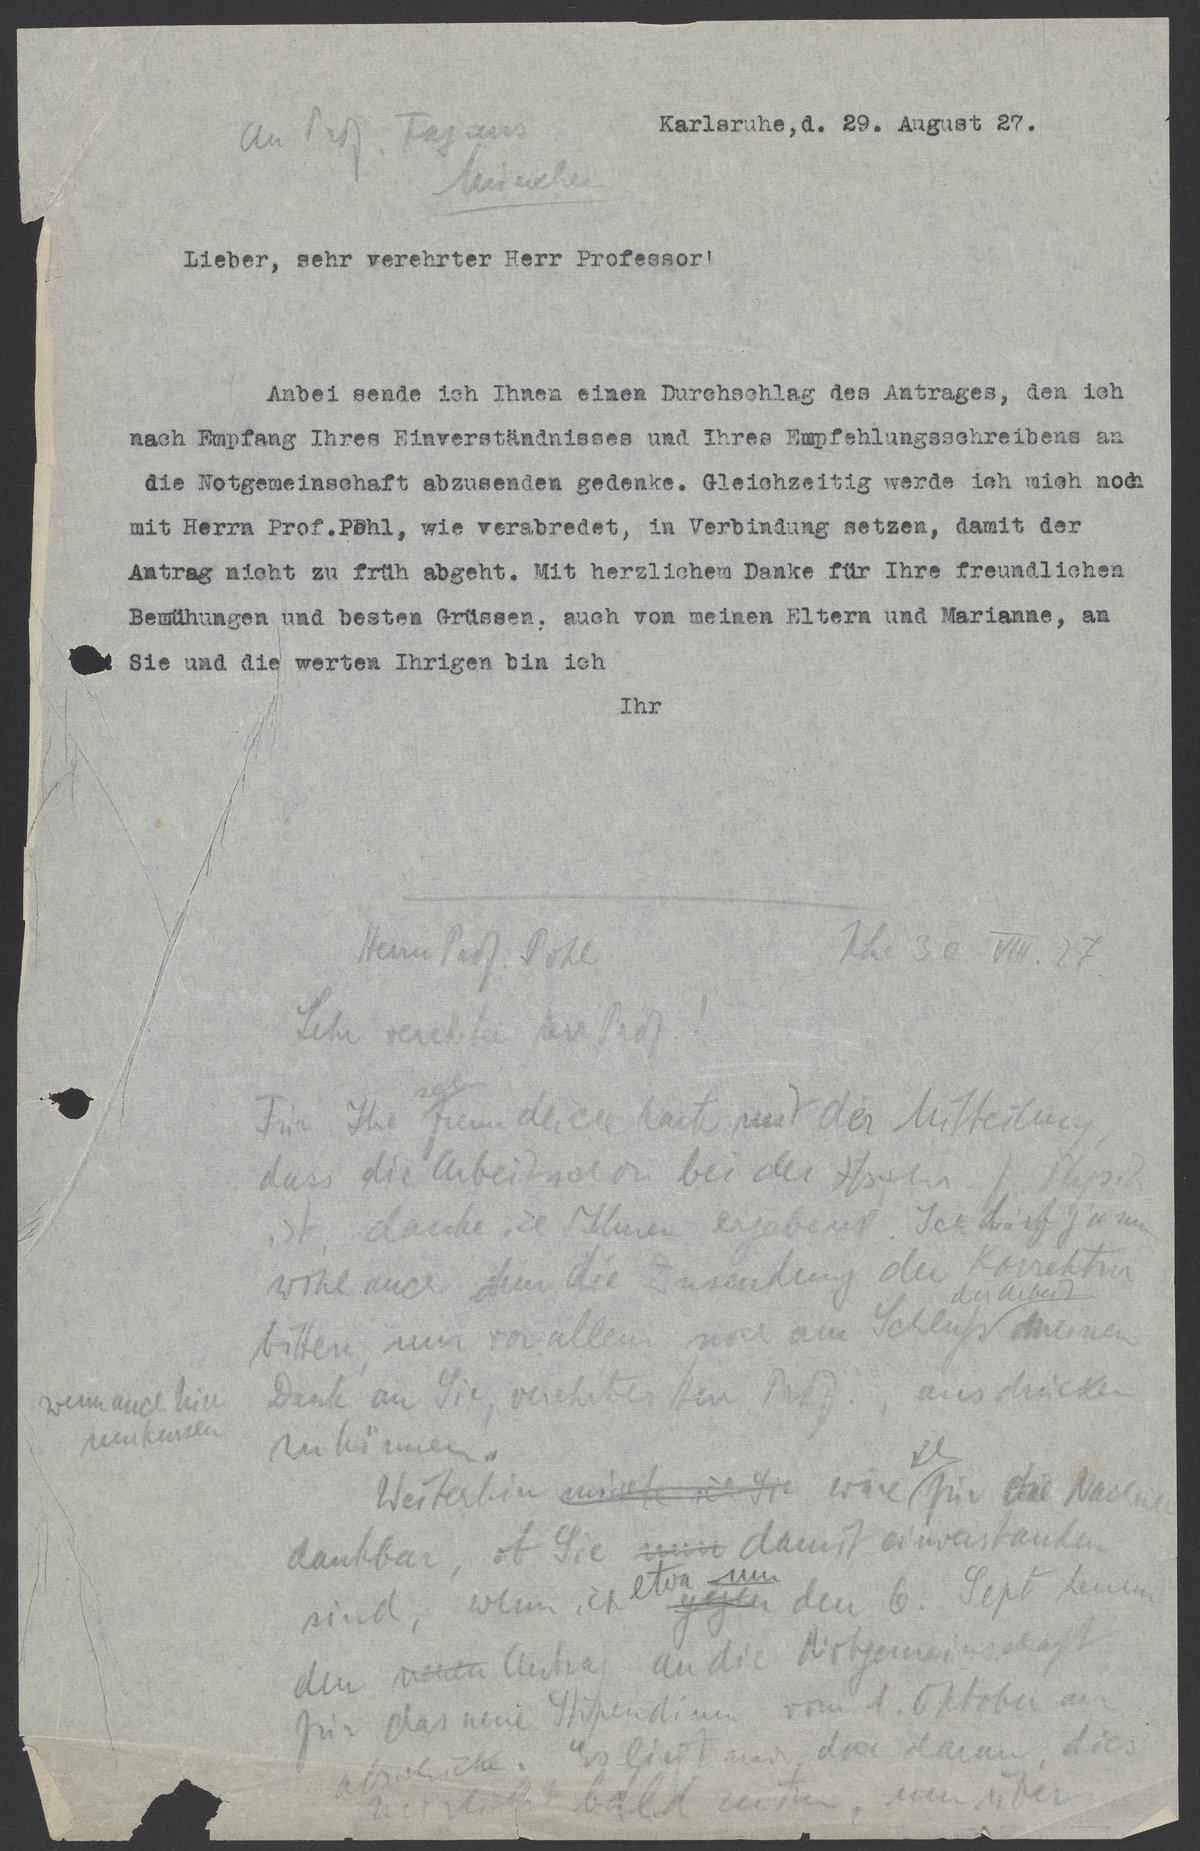 An Prof. Fajans
München
Karlsruhe,d. 29. August 27.
Lieber, sehr verehrter Herr Professor!
Anbei sende ich Ihnen einen Durchschlag des Antrages, den ich
nach Empfang Ihres Einverständnisses und Ihres Empfehlungsschreibens an
die Notgemeinschaft abzusenden gedenke. Gleichzeitig werde ich mich noch
mit Herrn Prof.Pohl, wie verabredet, in Verbindung setzen, damit der
Antrag nicht zu früh abgeht. Mit herzlichem Danke für Ihre freundlichen
Bemühungen und besten Grüssen, auch von meinen Eltern und Marianne, an
Sie und die werten Ihrigen bin ich
Ihr
Herrn Prof. Pohl
Khe 30 VIII. 27
Sehr verehrter Herr Prof.!
Für Ihre sehr freundliche Karte mit der Mitteilung,
dass die Arbeit schon bei der Ztschr. f. Physik
ist, danke ich Ihnen ergebenst. Ich darf
wohl auch um die Zusendung der Korrektur
bitten, um vor allem noch am Schluss der Arbeit meinen
Dank an Sie, verehrter Herr Prof., ausdrücken
zu können.
wenn auch hier
Weiterhin möchte ich Sie wäre ich für die
dankbar, ob Sie damit einverstanden
sind, wenn ich etwa um gegen den 6. Sept
den Antrag an die Notgemeinschaft
für das neue Stipendium vom 1. Oktober an
abschicke. Es liegt mir doch daran, dies
bald zu tun, um über